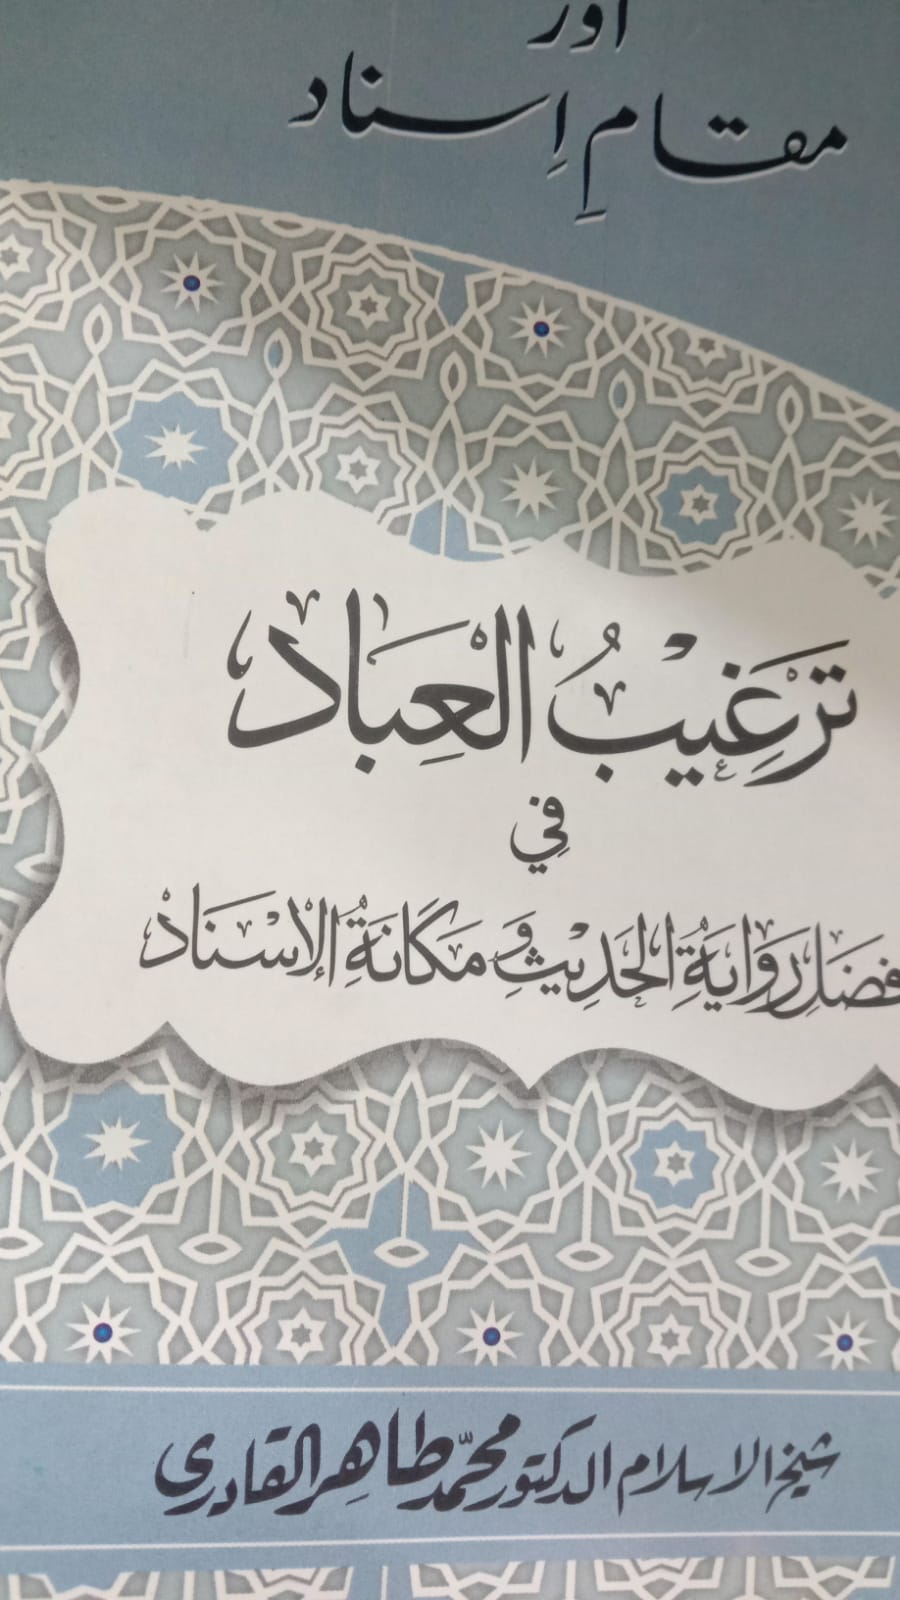 اور
مقامِ اِسناد
تَرْغِيْبُ الْعِبَادِ
فِي
فَضْلِ رِوَايَةِ الْحَدِيْثِ وَمَكَانَةِ الْإِسْنَادِ
شيخ الاسلام الدكتور محمّد طاهر القادري